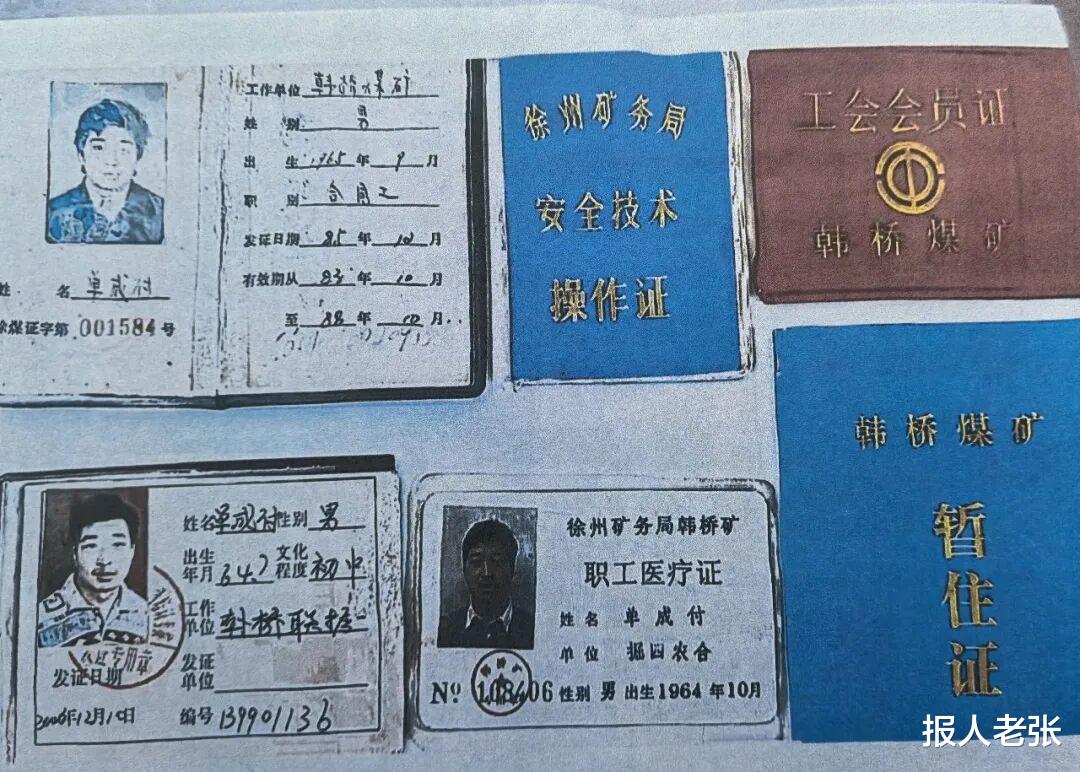 工作单位 韩桥煤矿
姓 别 男
出 生 1965 年 9 月
职 别 合同工
发证日期 85 年 10 月
有效期从 85 年 10 月
至 88 年 10 月
姓 名 单成付
徐煤证字第 001584 号
徐州矿务局
安全技术
操作证
工会会员证
韩桥煤矿
姓名 单成付 性别 男
出生年月 64.7 文化程度 初中
工作单位 韩桥联掘
发证单位
发证日期
2006年12月10日 编号 139901136
徐州矿务局韩桥矿
职工医疗证
姓名 单成付
单位 掘四农合
No 108406 性别 男 出生 1964 年 10月
韩桥煤矿
暂住证
报人老张